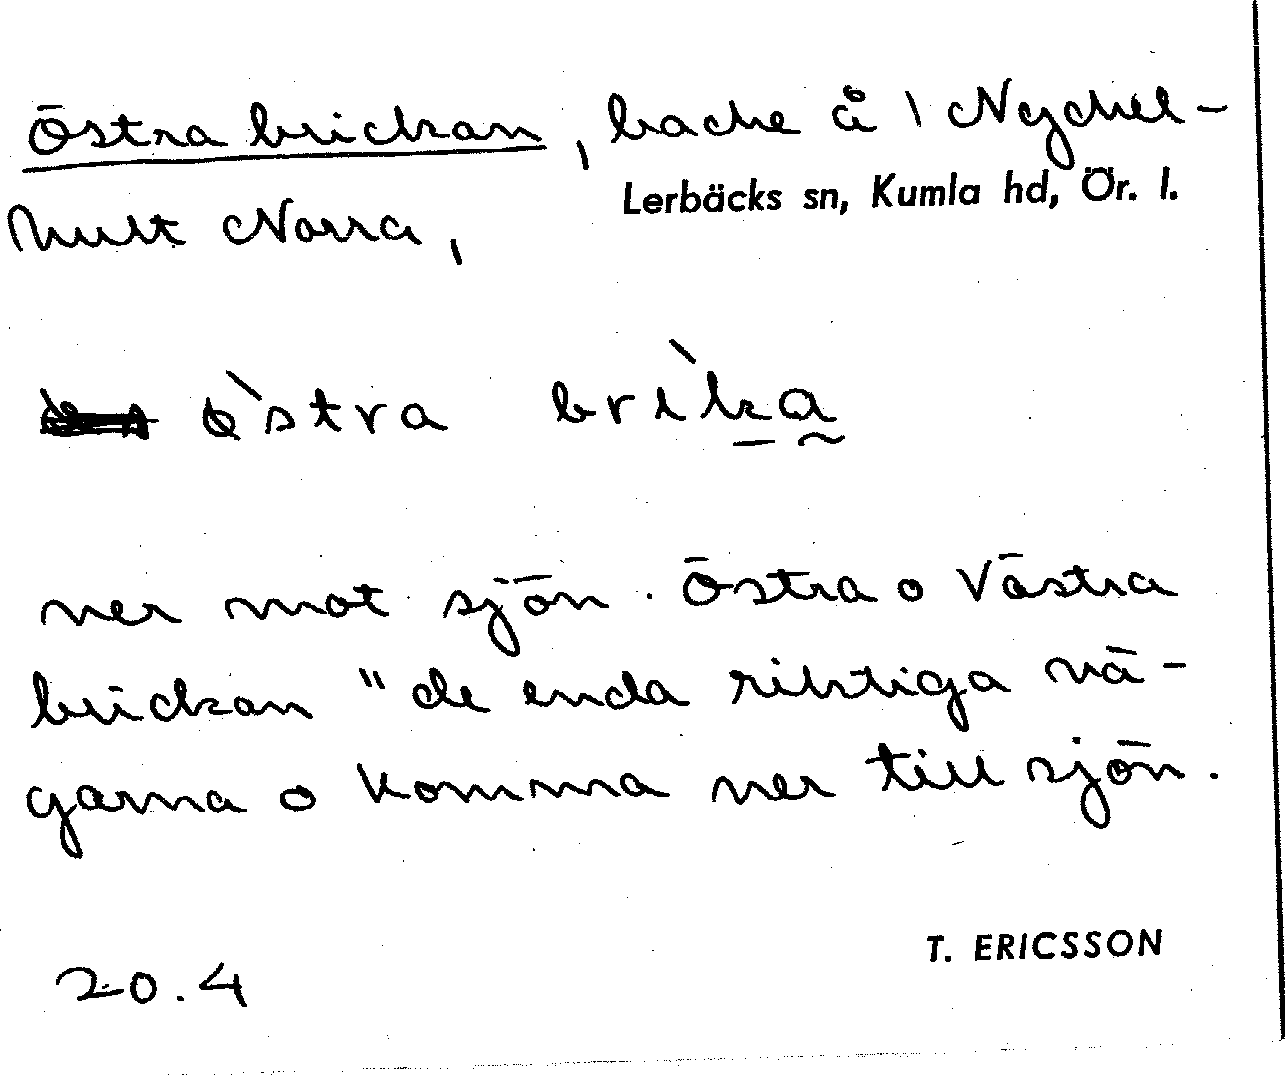 Östra brickan, backe å \ Nyckel-
Lerbäcks sn, Kumla hd, Ör. l.
hult Norra,
ò̀stra brìka
ner mot sjön. Östra o Västra
brickan "de enda riktiga vä-
garna o komma ner till sjön.
T. ERICSSON
20.4